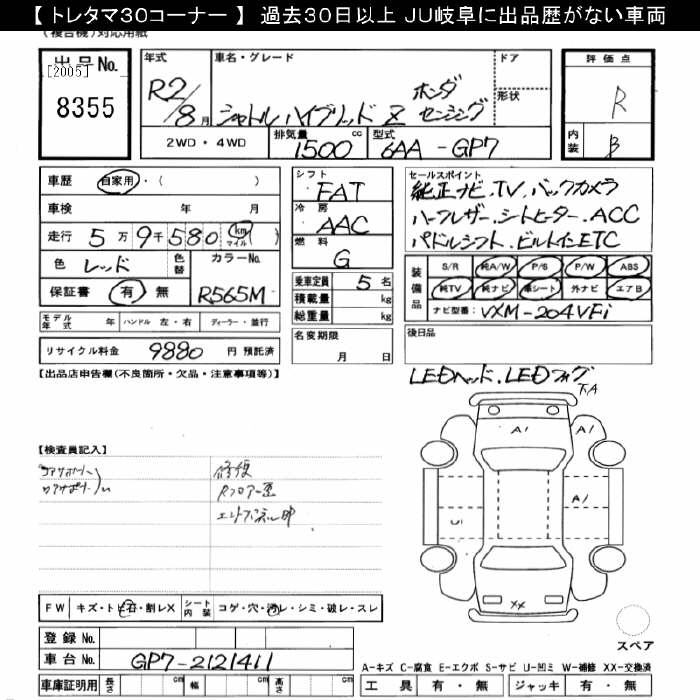 【 トレタマ30コーナー 】 過去30日以上 JU岐阜に出品歴がない車両
(複合機)対応用紙
出品No. [2005] 8355
年式 R2/8月
車名・グレード シャトルハイブリッド Z ホンダセンシング
ドア
形状
2WD・4WD
排気量 1500 cc
型式 6AA-GP7
評価点 R
内装 B
車歴 自家用・( )
車検 年 月
走行 5万9千580 km マイル ( )
色 レッド 色替
カラーNo. R565M
保証書 有 無
シフト FAT
冷房 AAC
燃料 G
乗車定員 5 名
積載量 kg
総重量 kg
セールスポイント
純正ナビ.TV.バックカメラ
ハーフレザー.シートヒーター.ACC
パドルシフト.ビルトインETC
装備品 S/R 純A/W P/S P/W ABS
純TV 純ナビ 革シート 外ナビ エアB
ナビ型番: VXM-204VFi
モデル年式 年 ハンドル 左・右 ディーラー・並行
リサイクル料金 9880 円 預託済
名変期限 月 日
後日品
【出品店申告欄(不良箇所・欠品・注意事項等)】
LEDヘッド.LEDフォグ
下A
A1
A1
A1
U1
XX
【検査員記入】
修復
Rフロアー歪
エンドパネル
FW キズ・トビ石・割レX
シート内装 コゲ・穴・汚レ・シミ・破レ・スレ
登録 No.
車台 No. GP7-2121411
車庫証明用 長さ cm 幅 cm 高さ cm
スペア
A-キズ C-腐食 E-エクボ S-サビ U-凹ミ W-補修 XX-交換済
工具 有・無 ジャッキ 有・無